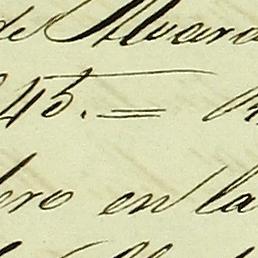 de Alvara
45. =
ero en la